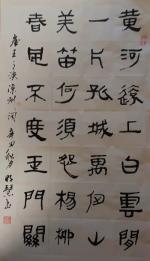 黄河遠上白雲間
一片孤城萬仞山
羌笛何須怨楊柳
春風不度玉門關
唐王之渙涼州詞